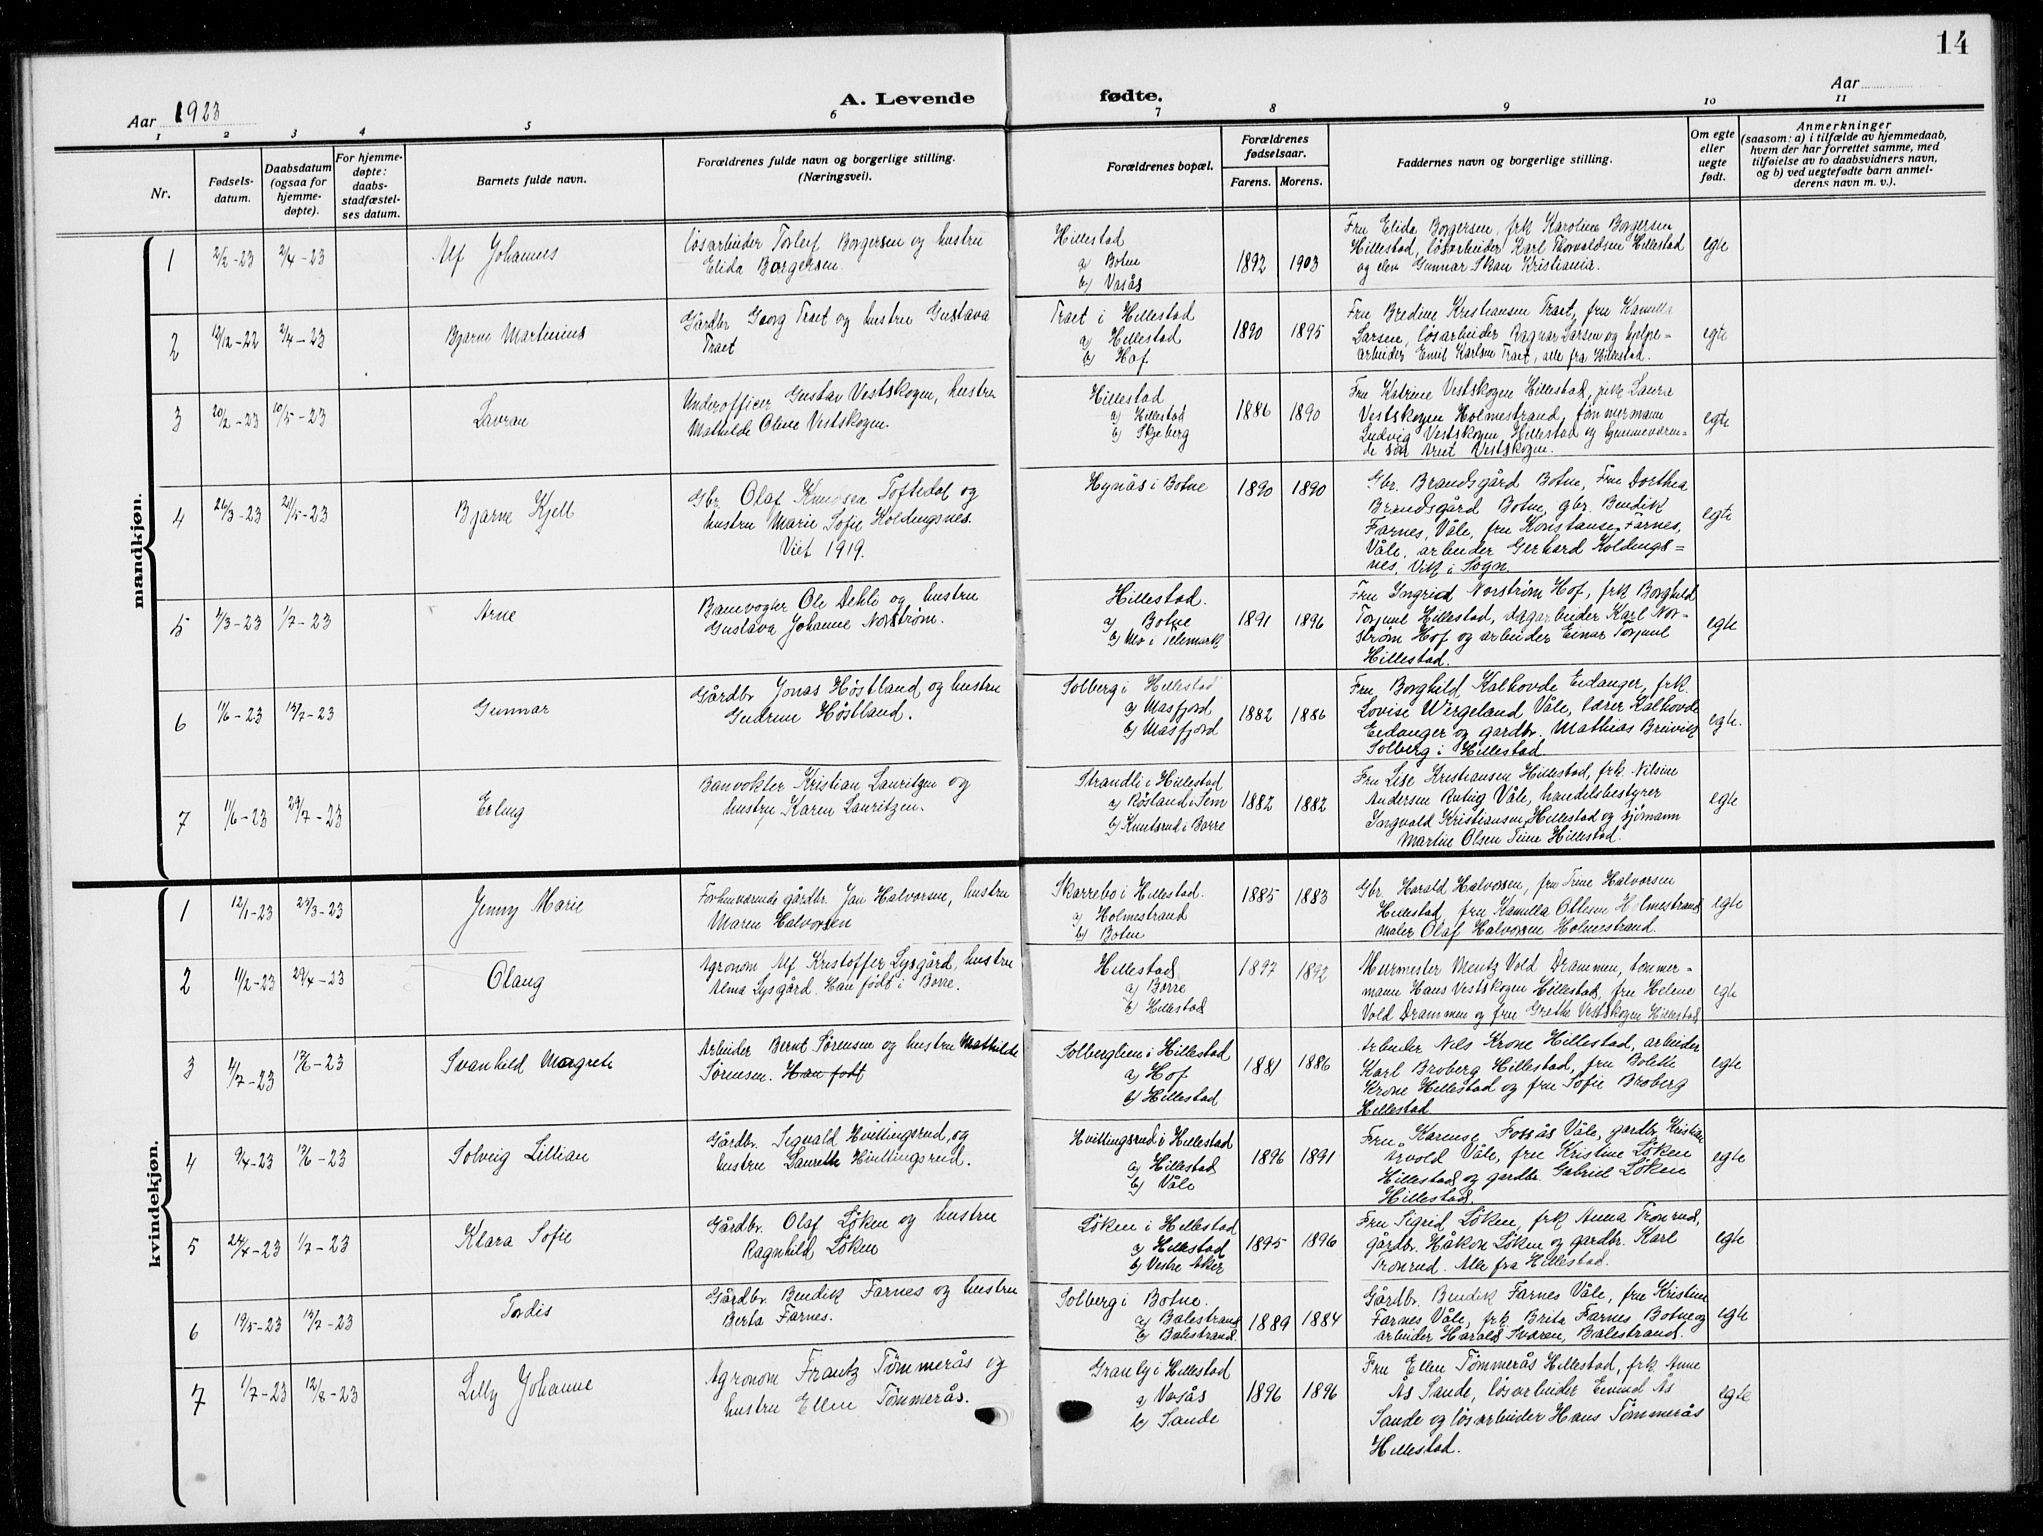 14
Aar 1923
A. Levende
fødte.
Aar
1 2 3 4 5 6 7 8 9 10 11
Nr.
Fødsels-
datum.
Daabsdatum
(ogsaa for
hjemme-
døpte).
For hjemme-
døpte:
daabs-
stadfæstel-
ses datum.
Barnets fulde navn.
Forældrenes fulde navn og borgerlige stilling.
(Næringsvei).
Forældrenes bopæl.
Forældrenes
fødselsaar.
Farens. Morens.
Faddernes navn og borgerlige stilling.
Om egte
eller
uegte
født.
Anmerkninger
(saasom: a) i tilfælde av hjemmedaab,
hvem der har forrettet samme, med
tilføielse av to daabsvidners navn,
og b) ved uegtefødte barn anmel-
derens navn m. v.).
mandkjøn.
1 2/2-23 2/4-23 Alf Johannes
løsarbeider Torleif Borgersen og hustru
Elida Borgersen.
Hillestad
a) Botne
b) Vasås
1892 1903
Fru Elida Borgersen, frk Karoline Borgersen
Hillestad, løsarbeider Karl Thorvaldsen Hillestad
og elev Gunnar Skan Kristiania.
egte
2 12/12-22 2/4-23 Bjarne Martinius
Gårdbr Georg Traet og hustru Gustava
Traet
Traet i Hillestad
a) Hillestad
b) Hof
1890 1895
Fru Bredine Kristiansen Traet, fru Kamilla
Larsen, løsarbeider Ragnar Larsen og hjelpe-
arbeider Emil Karlsen Traet, alle fra Hillestad.
egte
3 20/2-23 10/5-23 Lavran
Underofficer Gustav Vestskogen, hustru
Mathilde Oline Vestskogen.
Hillestad
a) Hillestad
b) Skjeberg
1886 1890
Fru Katrine Vestskogen Hillestad, frk Laura
Vestskogen Holmestrand, tømmermann
Ludvig Vestskogen Hillestad og hjemmeværen-
de søn Vestskogen.
egte
4 26/3-23 21/5-23 Bjarne Kjell
Gbr. Olaf Knudsen Toftedal og
hustru Marie Sofie Holdingsnes.
Viet 1919.
Hynås i Botne
1890 1890
Gbr. Brandsgård Botne, Fru Dorthea
Brandsgård Botne, gbr. Bendik
Farnes, Våle, fru Konstanse Farnes,
Våle, arbeider Gerhard Holdings=
nes, Vik i Sogn.
egte
5 4/3-23 1/7-23 Arne
Banevogter Ole Dehli og hustru
Gustava Johanne Norstrøm.
Hillestad.
a) Botne
b) Mo i Telemark
1891 1896
Fru Ingrid Norstrøm Hof, frk Borghild
Torjuul Hillestad, dagarbeider Karl Nor-
strøm Hof og arbeider Einar Torjuul
Hillestad.
egte
6 1/6-23 15/7-23 Gunnar
Gårdbr Jonas Høstland og hustru
Gudrun Høstland.
Solberg i Hillestad
a) Masfjord
b) Masfjord
1882 1886
Fru Borghild Kalhovde Eidanger, frk.
Lovise Wergeland Våle, lærer Kalhovde
Eidanger og gardbr. Mathias Breivik
Solberg i Hillestad
egte.
7 11/6-23 29/7-23 Erling
Banvokter Kristian Lauritzen og
hustru Karen Lauritzen.
Strandli i Hillestad
a) Røsland i Sem
b) Knutsrud i Borre
1882 1882
Fru Lise Kristiansen Hillestad, frk. Nilsine
Andersen Våle, handelsbestyrer
Ingvald Kristiansen Hillestad og sjømann
Martin Olsen Hillestad.
egte
kvindekjøn.
1 12/1-23 29/3-23 Jenny Marie
Forhenværende gårdbr. Jan Halvorsen, hustru
Maren Halvorsen
Skarrebo i Hillestad.
a) Holmestrand
b) Botne
1885 1883
Gbr. Harald Halvorsen, fru Trine Halvorsen
Hillestad, fru Kamilla Ottesen Holmestrand
maler Olaf Halvorsen Holmestrand.
egte
2 11/2-23 29/4-23 Olaug
Agronom Alf Kristoffer Lysgård, hustru
Alma Lysgård. Han født i Borre.
Hillestad
a) Borre
b) Hillestad
1897 1892
Murmester Mentz Vold Drammen, tømmer-
mann Hans Vestskogen Hillestad, fru Helene
Vold Drammen og frue Grethe Vestskogen Hillestad
egte
3 4/7-23 17/6-23 Svanhild Margrete
Arbeider Bernt Sørensen og hustru Mathilde
Sørensen. Han født
Solberglien i Hillestad
a) Hof
b) Hillestad
1881 1886
Arbeider Nils Krone Hillestad, arbeider
Karl Broberg Hillestad, fru Bolette
Krone Hillestad og fru Sofie Broberg
Hillestad
egte
4 9/4-23 17/6-23 Solveig Lillian
Gårdbr. Sigvald Hvittingsrud, og
hustru Laurette Hvittingsrud.
Hvittingsrud i Hillestad
a) Hillestad
b) Våle
1896 1891
Fru Karense Fossås Våle, gardbr. Kristian
Arvold Våle, fru Kristine Løken
Hillestad og gardbr. Gabriel Løken
Hillestad.
egte
5 24/4-23 1/7-23 Klara Sofie
Gårdbr. Olaf Løken og hustru
Ragnhild Løken
Løken i Hillestad
a) Hillestad
b) Vestre Aker
1895 1896
Fru Sigrid Løken, frk Anna Tronrud,
gårdbr. Håkon Løken og gardbr. Karl
Tronrud. Alle fra Hillestad.
egte
6 19/5-23 15/7-23 Tordis
Gårdbr. Bendik Farnes og hustru
Berta Farnes.
Solberg i Botne.
a) Balestrand
b) Balestrand
1889 1884
Gårdbr. Bendik Farnes Våle, fru Kristine
Farnes Våle, frk. Brita Farnes Botne og
arbeider Harald Sværen, Balestrand.
egte
7 1/7-23 12/8-23 Lilly Johanne
Agronom Frantz Tømmerås og
hustru Ellen Tømmerås.
Granly i Hillestad
a) Vasås
b) Sande
1896 1896
Fru Ellen Tømmerås Hillestad, frk Anne
Ås Sande, løsarbeider Eivind Ås
Sande og løsarbeider Hans Tømmerås
Hillestad.
egte